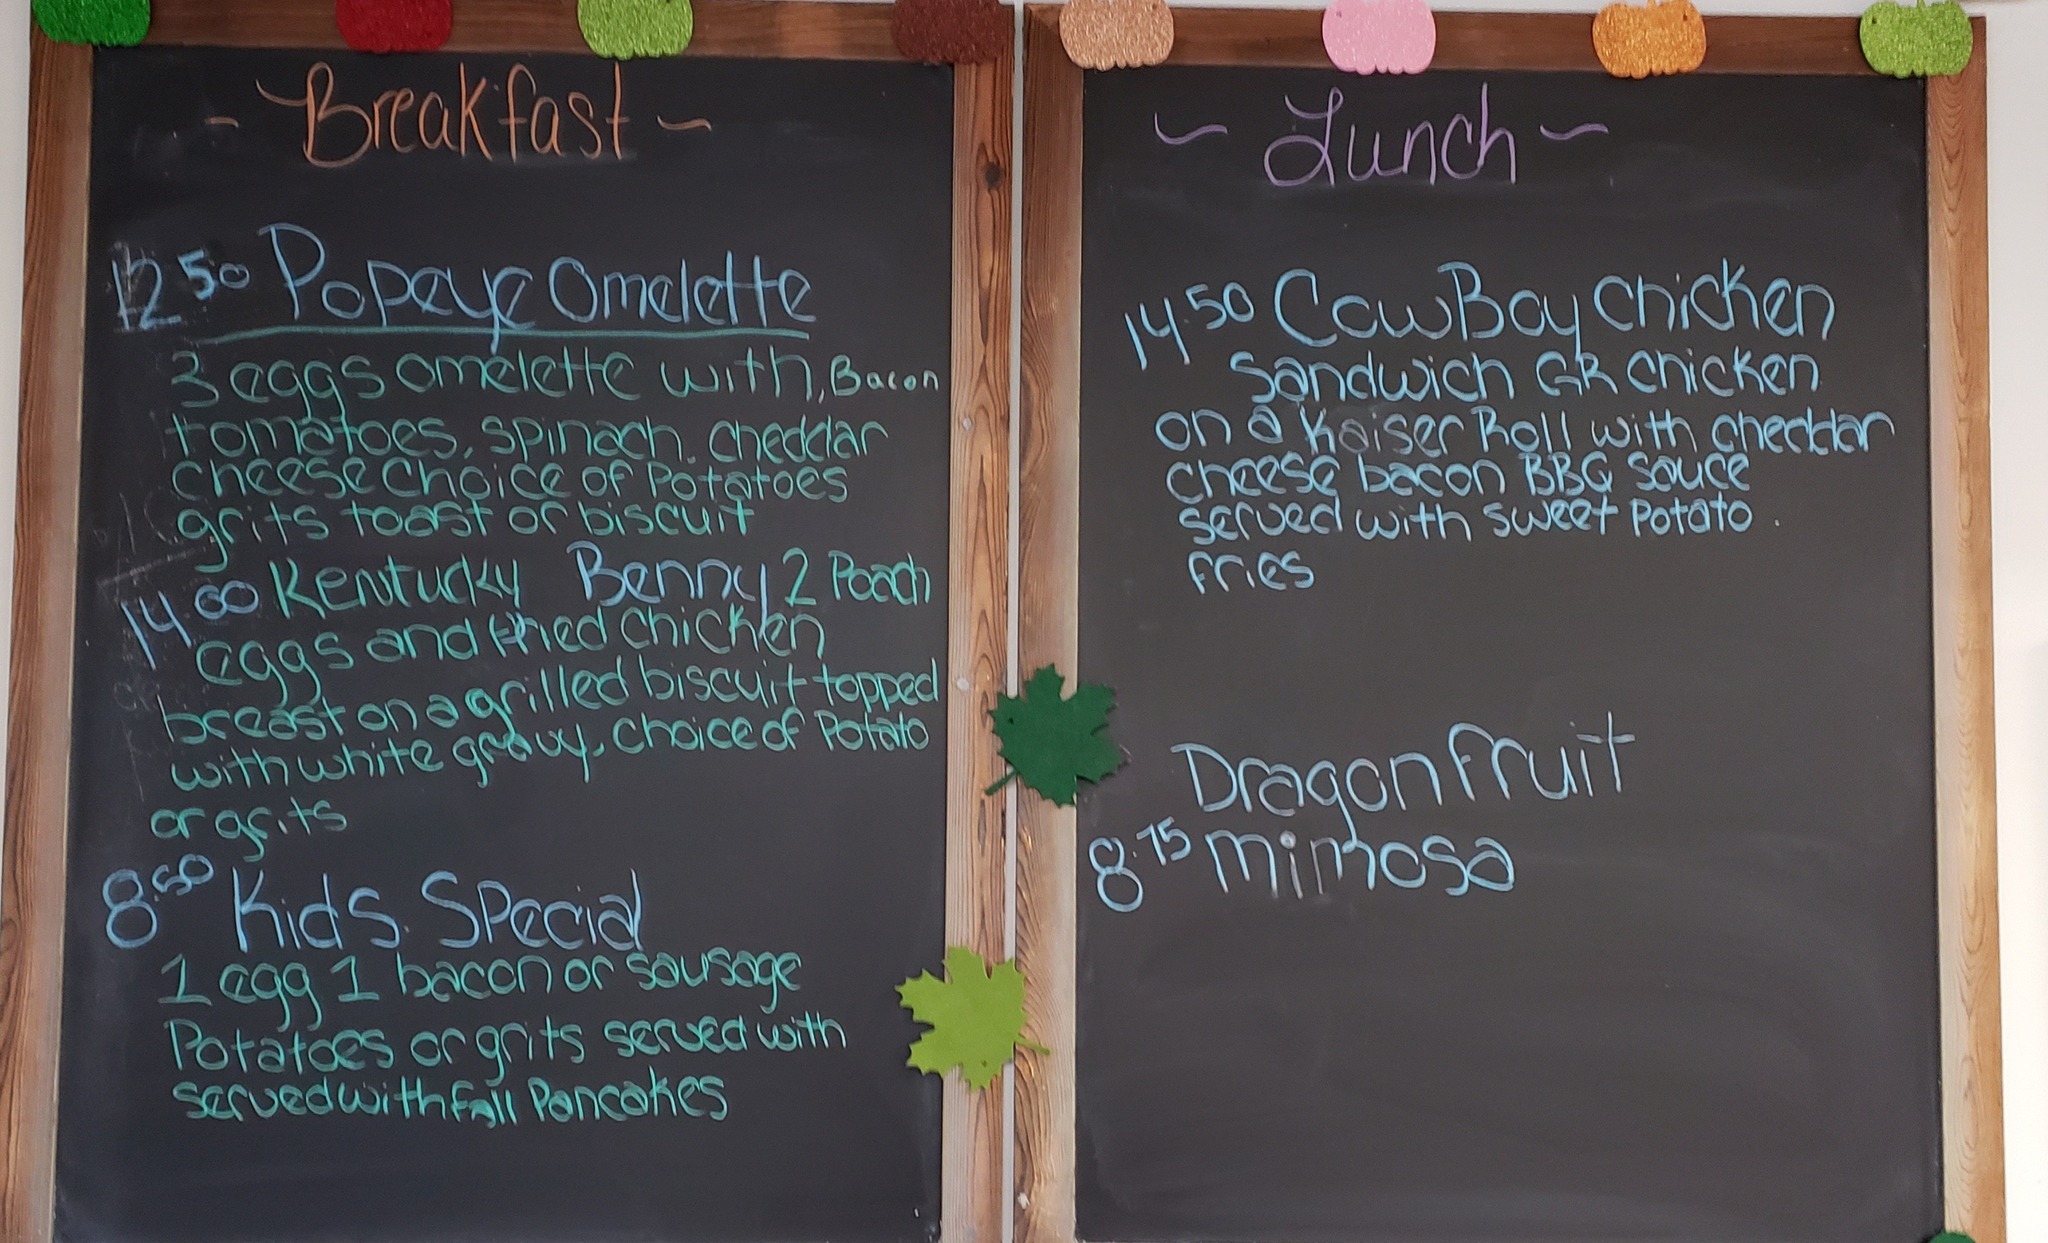 ~ Breakfast ~
12.50 Popeye Omelette
3 eggs omelette with, Bacon
tomatoes, spinach, cheddar
cheese choice of Potatoes
grits toast or biscuit
14.00 Kentucky Benny 2 Poach
eggs and fried chicken
breast on a grilled biscuit topped
with white gravy, choice of Potato
or grits
8.50 Kids Special
1 egg 1 bacon or sausage
Potatoes or grits served with
served with fall Pancakes
~ Lunch ~
14.50 CowBoy chicken
Sandwich GR chicken
on a Kaiser Roll with cheddar
cheese bacon BBQ sauce
served with sweet Potato
fries
Dragon fruit
8.75 mimosa